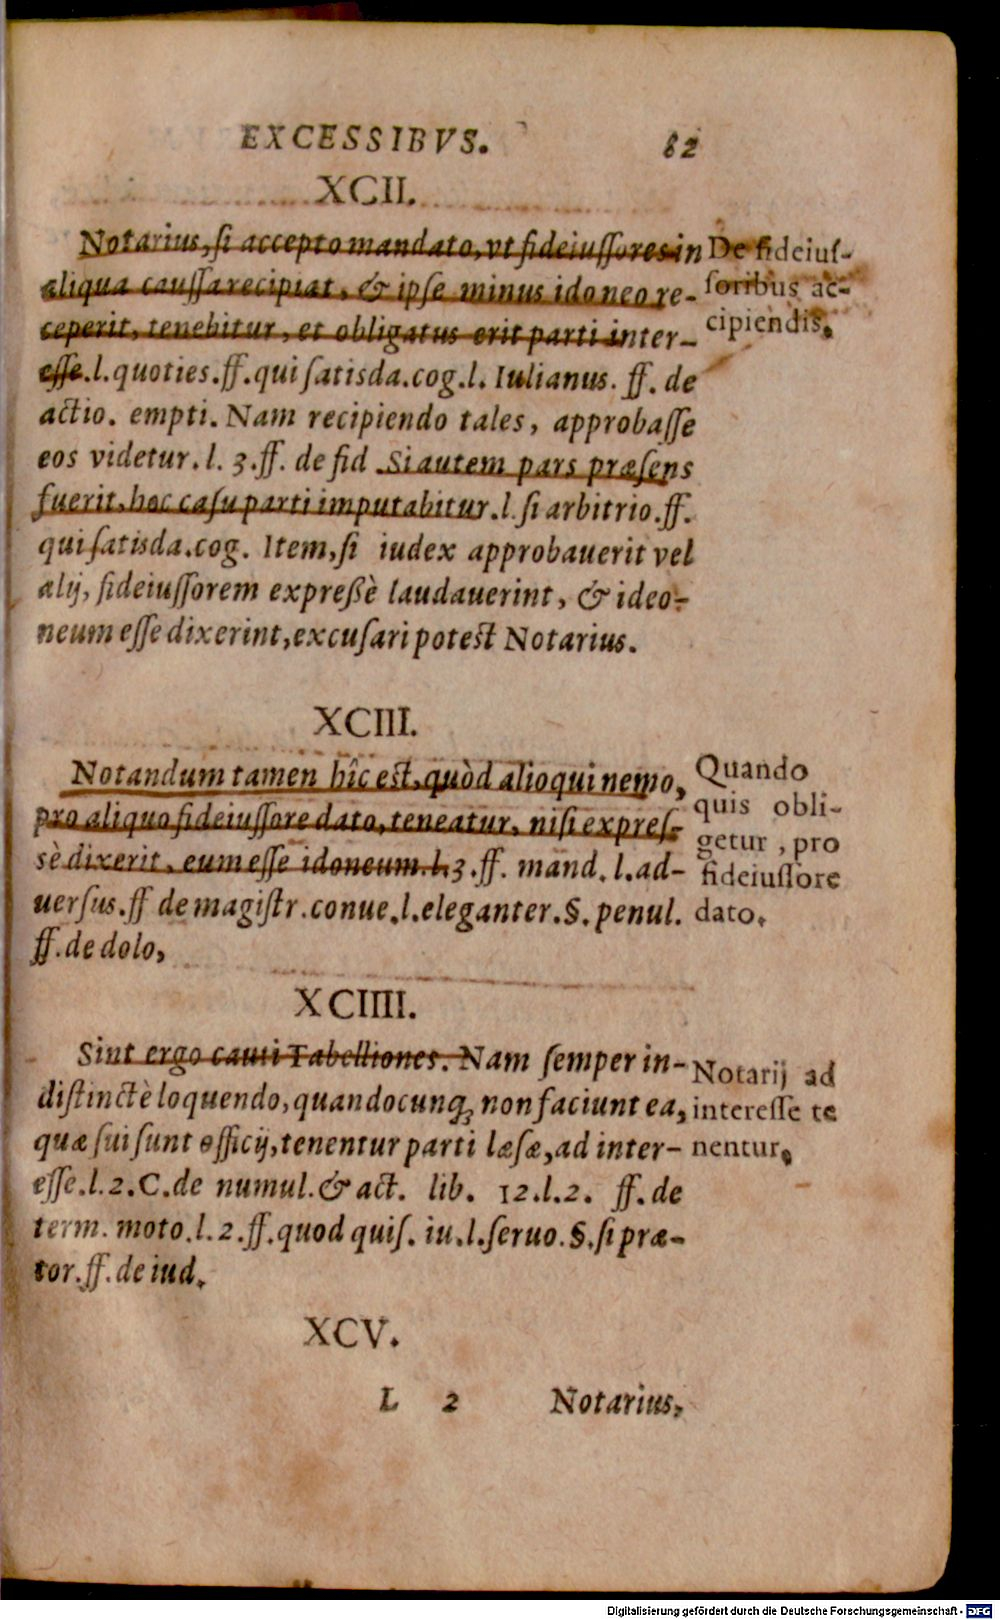 EXCESSIBVS. 82
XCII.
Notarius, ſi accepto mandato, vt fideiuſſores in
aliqua cauſſa recipiat, & ipſe minus idoneo re-
ceperit, tenebitur, et obligatus erit parti inter-
eſſe.l.quoties.ff.qui ſatisda.cog.l. Iulianus. ff. de
actio. empti. Nam recipiendo tales, approbaſſe
eos videtur.l. 3.ff. de fid. Si autem pars præſens
fuerit, hoc caſu parti imputabitur.l.ſi arbitrio.ff.
qui ſatisda.cog. Item, ſi iudex approbauerit vel
alij, fideiuſſorem expreßè laudauerint, & ideo-
neum eſſe dixerint, excuſari poteſt Notarius.
De fideiuſ-
ſoribus ac-
cipiendis.
XCIII.
Notandum tamen hîc eſt, quòd alioqui nemo,
pro aliquo fideiuſſore dato, teneatur, niſi expreſ-
sè dixerit, eum eſſe idoneum.l.3.ff. mand. l.ad-
uerſus.ff de magiſtr.conue.l.eleganter.§.penul.
ff.de dolo,
Quando
quis obli-
getur, pro
fideiuſſore
dato.
XCIIII.
Sint ergo cauti Tabelliones. Nam ſemper in-
diſtinctè loquendo, quandocunq; non faciunt ea,
quæ ſui ſunt officij, tenentur parti læſæ, ad inter-
eſſe.l.2.C.de numul.& act. lib. 12.l.2. ff. de
term. moto.l.2.ff.quod quiſ. iu.l.ſeruo.§.ſi præ-
tor.ff.de iud.
Notarij ad
intereſſe te
nentur.
XCV.
L 2 Notarius,
Digitalisierung gefördert durch die Deutsche Forschungsgemeinschaft - DFG